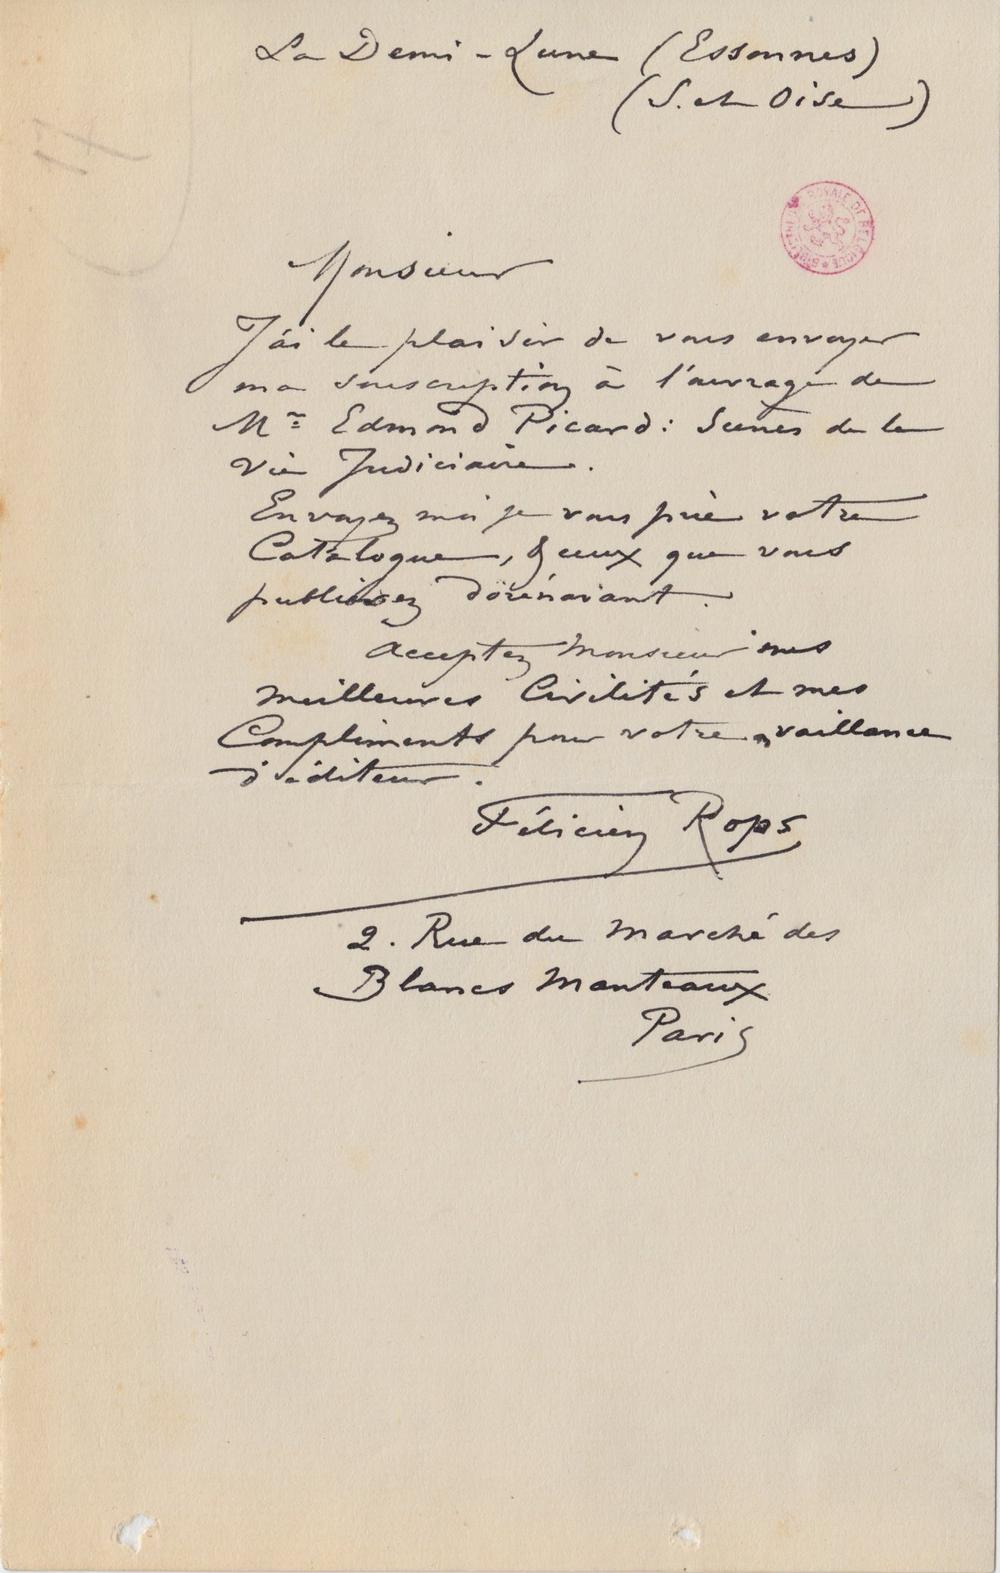 La Demi-Lune (Essonnes)
(S. et Oise)
BIBLIOTHÈQUE ROYALE DE BELGIQUE
Monsieur
J'ai le plaisir de vous envoyer
ma souscription à l'ouvrage de
Mr Edmond Picard: Scènes de la
Vie Judiciaire.
Envoyez moi je vous prie votre
Catalogue, & ceux que vous
publierez dorénavant.
Acceptez Monsieur mes
meilleures Civilités et mes
Compliments pour votre vaillance
d'éditeur.
Félicien Rops
2. Rue du Marché des
Blancs Manteaux
Paris